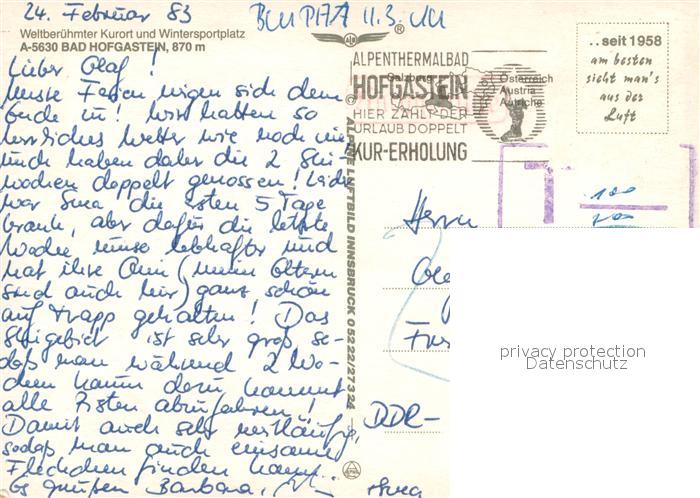 24. Februar 83
Weltberühmter Kurort und Wintersportplatz
A-5630 BAD HOFGASTEIN, 870 m
Lieber Olaf!
unsre Ferien neigen sich dem
Ende zu! Wir hatten so
herrliches Wetter wie noch nie
und haben daher die 2 Ski-
wochen doppelt genossen! Leider
war die ersten 5 Tage
krank, aber dafür die letzte
Woche umso lebhafter und
hat ihre Omi (meine Eltern
sind auch hier) ganz schön
auf Trapp gehalten! Das
Skigebiet ist sehr groß, so-
daß man während 2 Wo-
chen kaum dazu kommt
alle Pisten abzufahren!
Damit auch sehr weitläufig,
sodaß man auch einsame
Fleckchen finden kann.
Es grüßen Barbara,
11.3.
ALPENTHERMALBAD
HOFGASTEIN
HIER ZÄHLT DER
URLAUB DOPPELT
KUR-ERHOLUNG
Salzburg
Österreich
Austria
Autriche
..seit 1958
am besten
sieht man's
aus der
Luft
© ALPINE LUFTBILD INNSBRUCK 05222/27324
100
Herrn
DDR-
privacy protection
Datenschutz